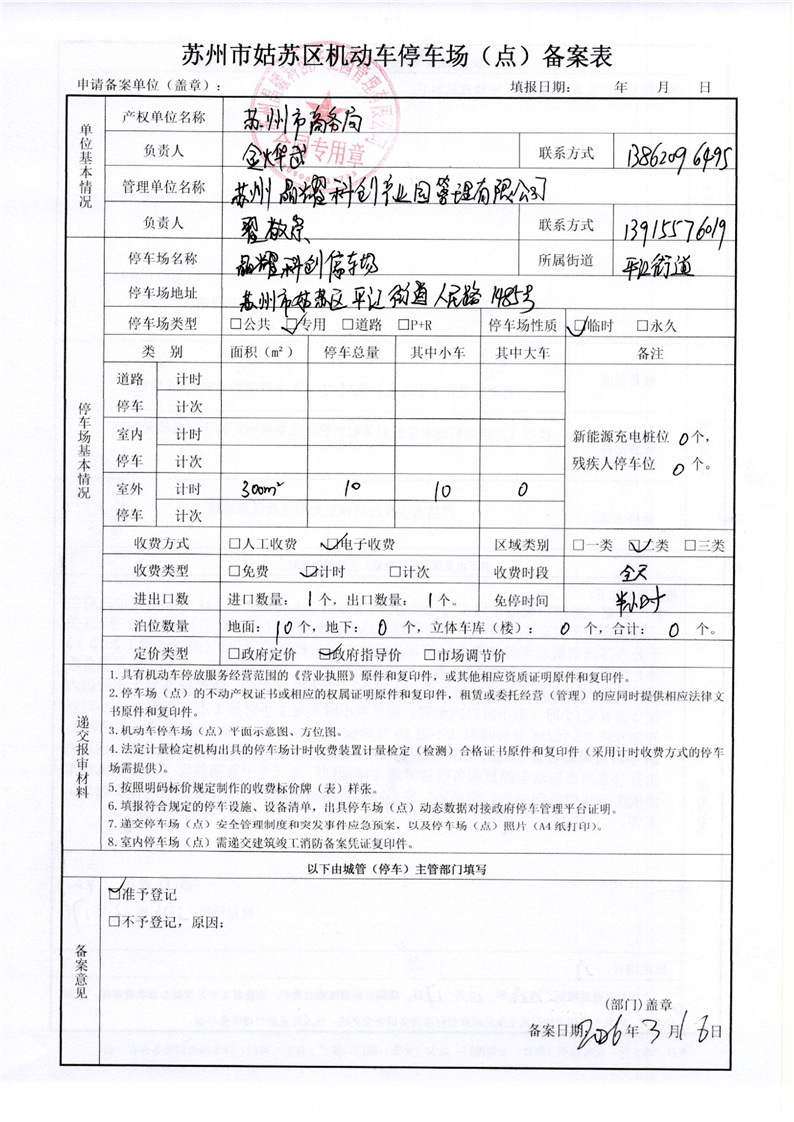 苏州市姑苏区机动车停车场（点）备案表
申请备案单位（盖章）： 填报日期： 年 月 日
单位基本情况
产权单位名称 苏州市商务局
负责人 联系方式 13862096495
管理单位名称 苏州晶耀科创产业园管理有限公司
负责人 联系方式 13915576019
停车场名称 晶耀科创停车场 所属街道 平江街道
停车场地址 苏州市姑苏区平江街道人民路1485号
停车场类型 □公共 ☑专用 □道路 □P+R 停车场性质 ☑临时 □永久
停车场基本情况
类 别 面积（m²） 停车总量 其中小车 其中大车 备注
道路 计时
停车 计次
室内 计时 新能源充电桩位 0个，
停车 计次 残疾人停车位 0个。
室外 计时 300m² 10 10 0
停车 计次
收费方式 □人工收费 ☑电子收费 区域类别 □一类 ☑二类 □三类
收费类型 □免费 ☑计时 □计次 收费时段 全天
进出口数 进口数量：1个，出口数量：1个。 免停时间 半小时
泊位数量 地面：10个，地下：0个，立体车库（楼）：0个，合计：0个。
定价类型 □政府定价 ☑政府指导价 □市场调节价
递交报审材料
1.具有机动车停放服务经营范围的《营业执照》原件和复印件，或其他相应资质证明原件和复印件。
2.停车场（点）的不动产权证书或相应的权属证明原件和复印件，租赁或委托经营（管理）的应同时提供相应法律文
书原件和复印件。
3.机动车停车场（点）平面示意图、方位图。
4.法定计量检定机构出具的停车场计时收费装置计量检定（检测）合格证书原件和复印件（采用计时收费方式的停车
场需提供）。
5.按照明码标价规定制作的收费标价牌（表）样张。
6.填报符合规定的停车设施、设备清单，出具停车场（点）动态数据对接政府停车管理平台证明。
7.递交停车场（点）安全管理制度和突发事件应急预案，以及停车场（点）照片（A4纸打印）。
8.室内停车场（点）需递交建筑竣工消防备案凭证复印件。
以下由城管（停车）主管部门填写
备案意见
☑准予登记
□不予登记，原因：
(部门)盖章
备案日期2026年3月16日
合同专用章